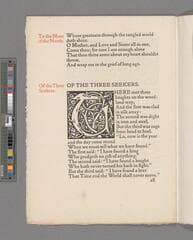 To the Muse
of the North.
Whose greatness through the tangled world
doth
O Mother, and Love and Sister all in one,
Come thou; for sure I am enough alone
That thou thine arms about my heart shouldst
throw,
And wrap me in the grief of long ago.
Of the Three
Seekers.
OF THE THREE SEEKERS.
THERE met three
knights on the wood-
land way,
And the first was clad
in silk array:
The second was dight
in iron and steel,
But the third was rags
from head to heel.
"Lo, now is the year
and the day come round
When we must tell what we have found."
The first said: "I have found a king
Who grudgeth no gift of anything."
The second said: "I have found a knight
Who hath never turned his back in fight."
But the third said: "I have found a love
That Time and the World shall never move."